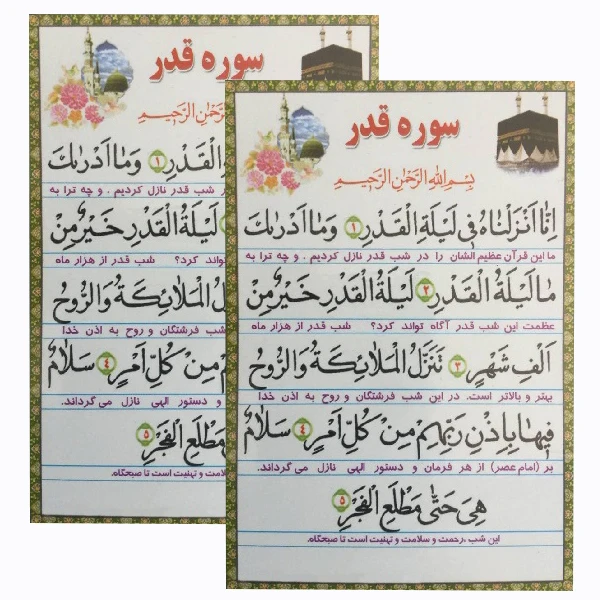 سوره قدر
بِسْمِ اللهِ الرَّحْمٰنِ الرَّحِيمِ
اِنّٰا اَنْزَلْنٰاهُ فِي لَيْلَةِ الْقَدْرِ ١ وَمٰا اَدْرٰىكَ
ما این قرآن عظیم الشان را در شب قدر نازل کردیم . و چه ترا به
مٰا لَيْلَةُ الْقَدْرِ ٢ لَيْلَةُ الْقَدْرِ خَيْرٌ مِنْ
عظمت این شب قدر آگاه تواند کرد؟ شب قدر از هزار ماه
اَلْفِ شَهْرٍ ٣ تَنَزَّلُ الْمَلٰائِكَةُ وَالرُّوحُ
بهتر و بالاتر است. در این شب فرشتگان و روح به اذن خدا
فِيهٰا بِاِذْنِ رَبِّهِمْ مِنْ كُلِّ اَمْرٍ ٤ سَلٰامٌ
بر (امام عصر) از هر فرمان و دستور الهی نازل می گرداند.
هِيَ حَتّٰى مَطْلَعِ الْفَجْرِ ٥
این شب ،رحمت و سلامت و تهنیت است تا صبحگاه.
سوره قدر
الرَّحْمٰنِ الرَّحِيمِ
الْقَدْرِ ١ وَمٰا اَدْرٰىكَ
شب قدر نازل کردیم . و چه ترا به
لَيْلَةُ الْقَدْرِ خَيْرٌ مِنْ
تواند کرد؟ شب قدر از هزار ماه
الْمَلٰائِكَةُ وَالرُّوحُ
شب فرشتگان و روح به اذن خدا
مِنْ كُلِّ اَمْرٍ ٤ سَلٰامٌ
و دستور الهی نازل می گرداند.
مَطْلَعِ الْفَجْرِ ٥
سلامت و تهنیت است تا صبحگاه.